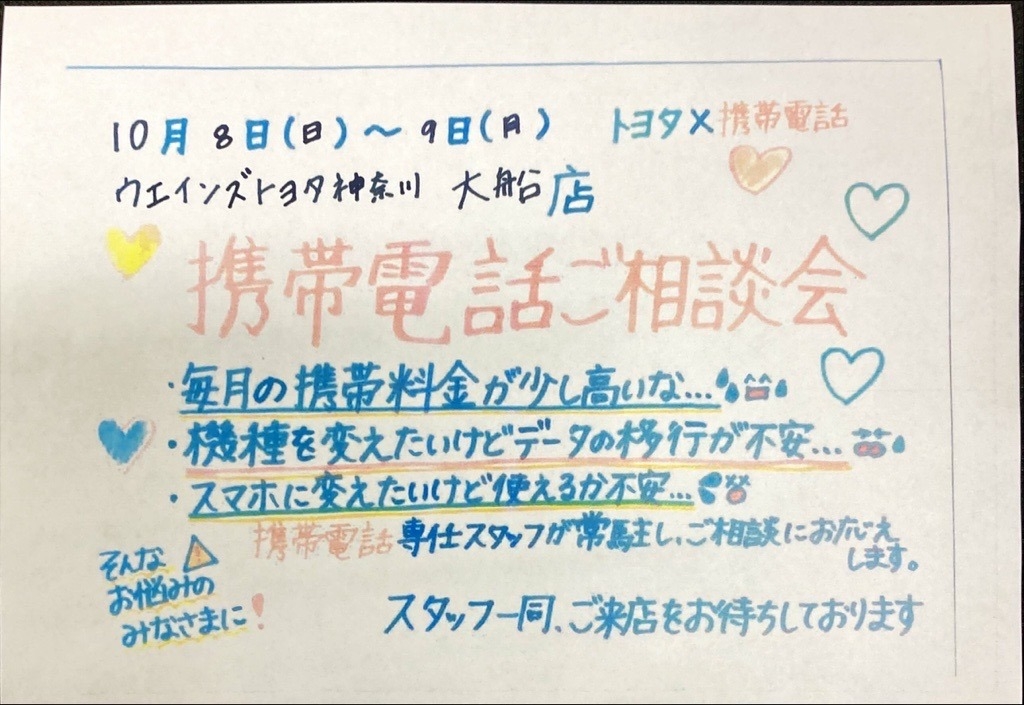 10月8日(日)〜9日(月) トヨタ×携帯電話
ウエインズトヨタ神奈川 大船店
携帯電話ご相談会
・毎月の携帯料金が少し高いな…
・機種を変えたいけどデータの移行が不安…
・スマホに変えたいけど使えるか不安…
携帯電話専任スタッフが常駐し、ご相談にお応え
します。
そんな
お悩みの
みなさまに!
スタッフ一同、ご来店をお待ちしております